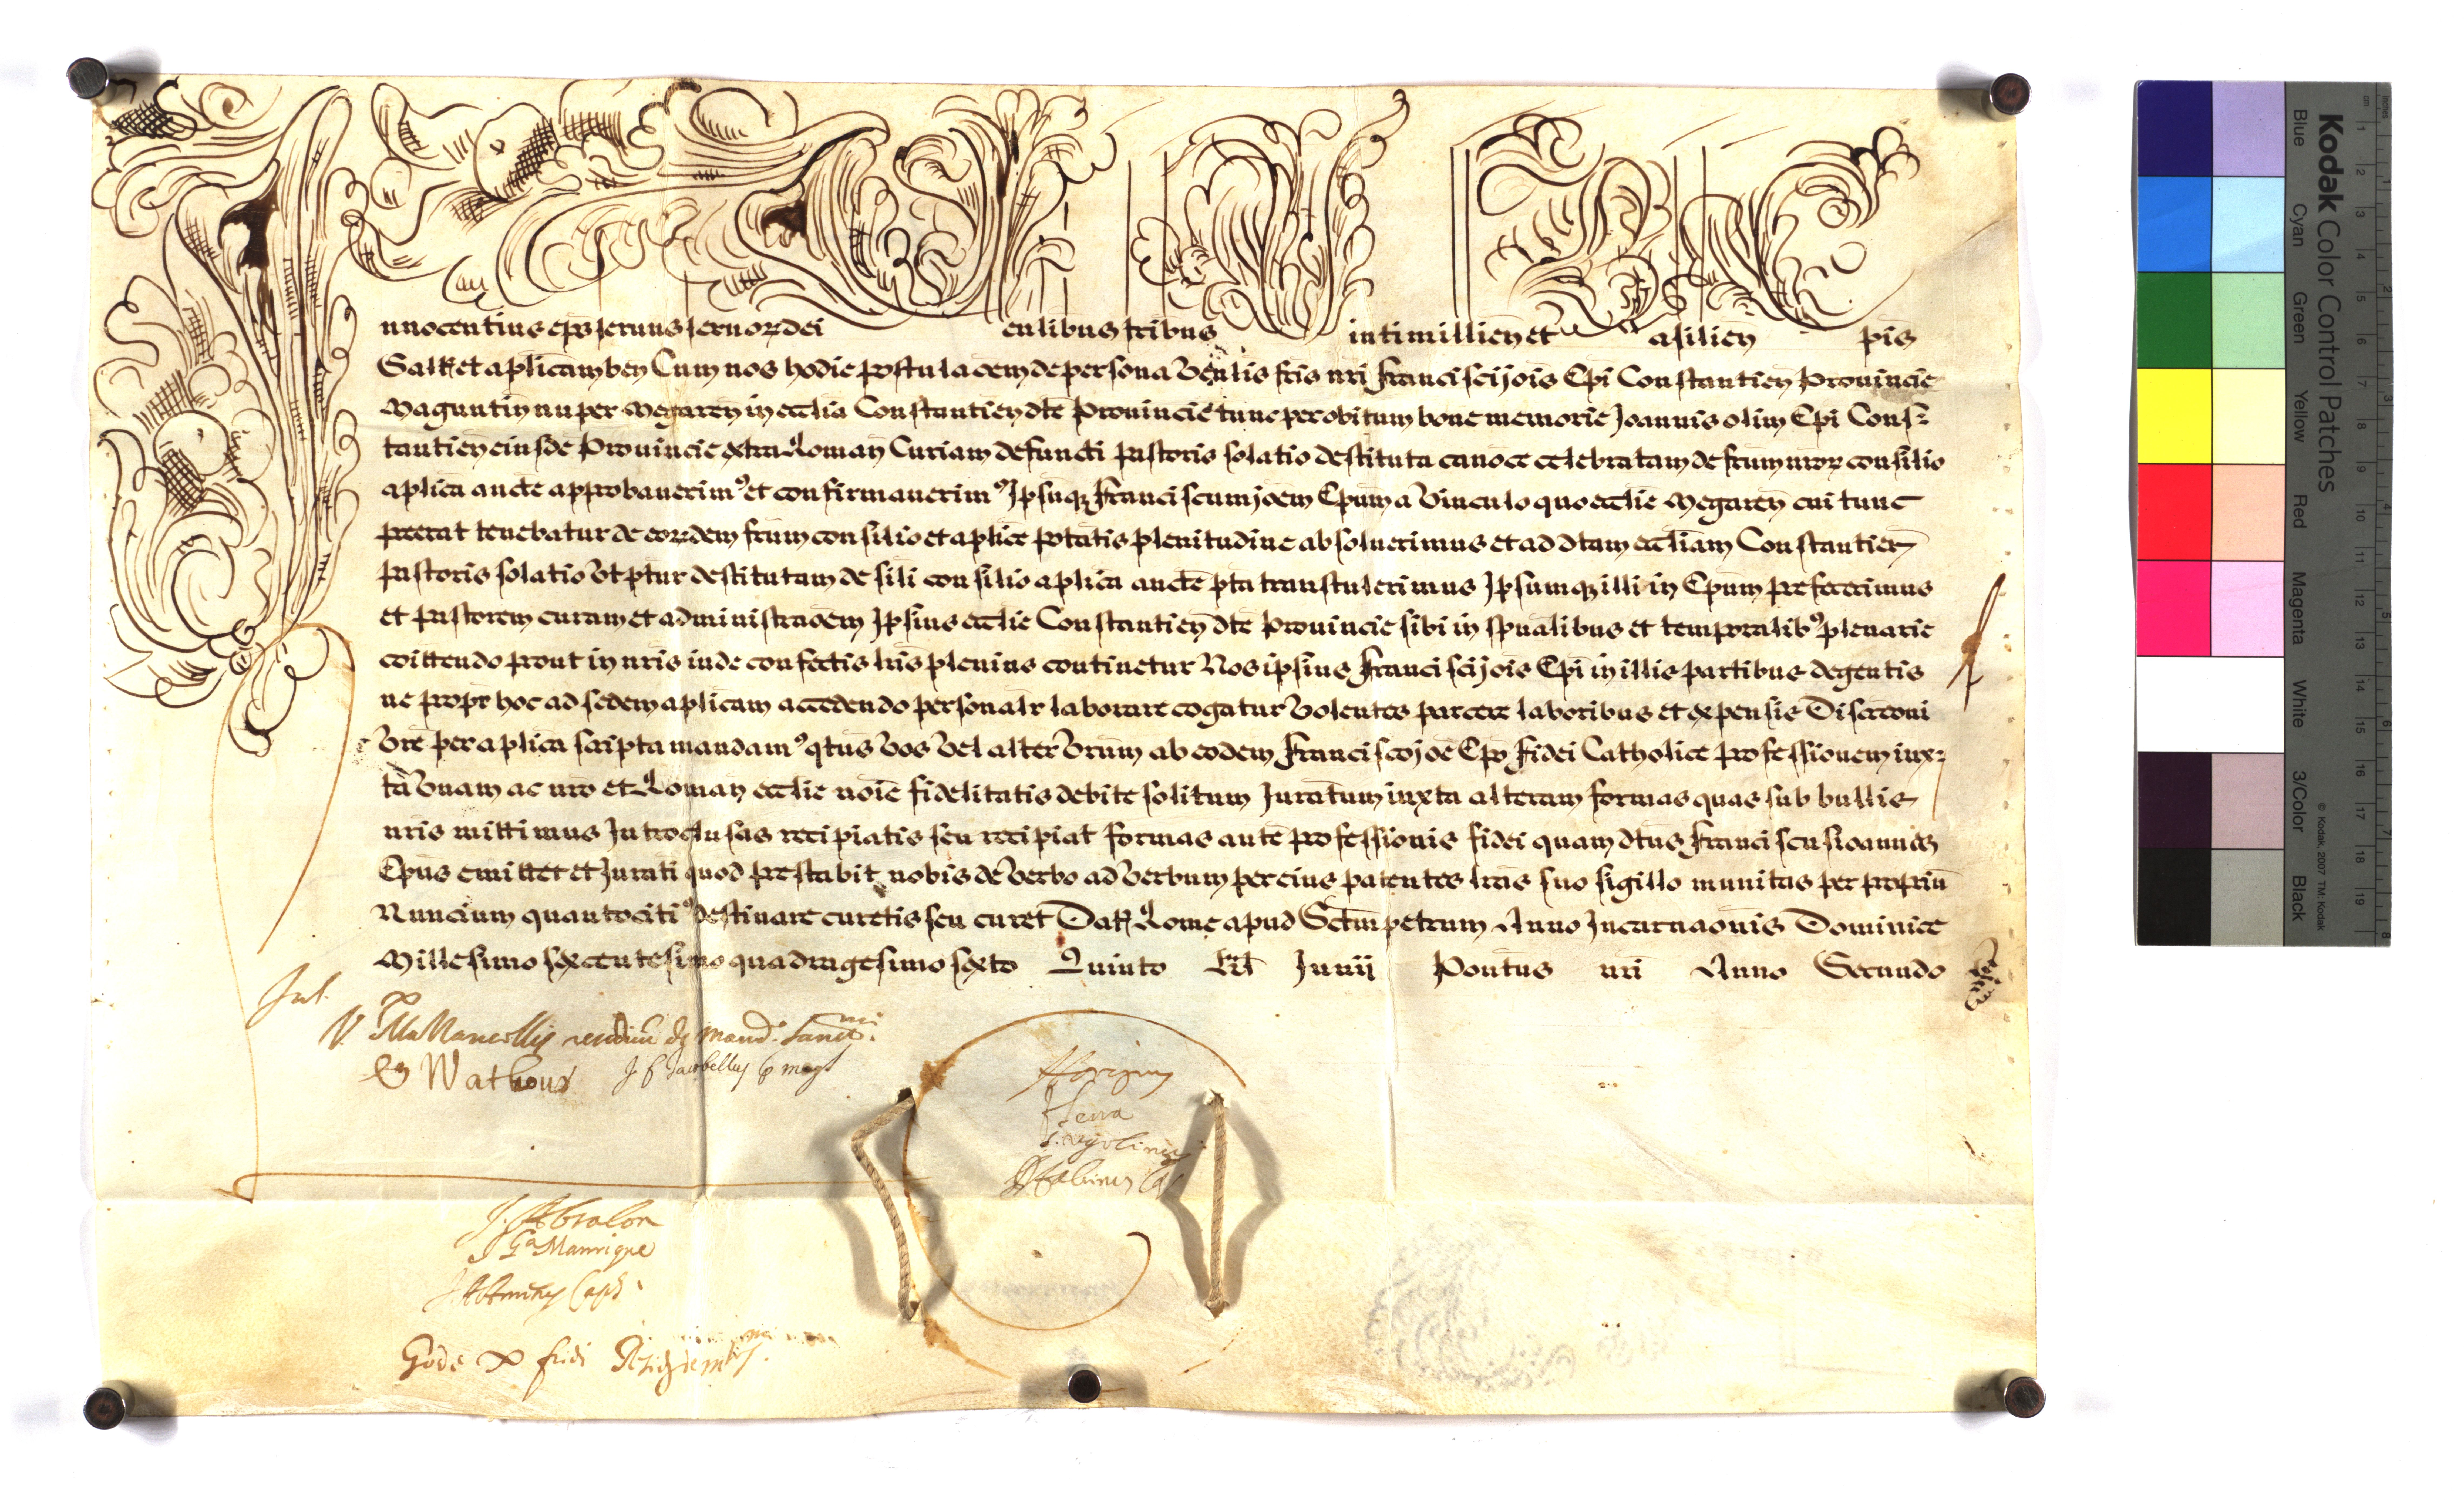 nnocentius ep̃s seruus seruor dei enlibus fribus intimillien̄ et asilien̄ pis
Saltm et aplicam ben Cum nos hodie postulaõem de persona Veñlis fris nri Francisci Jois Epi Constantien Prouincie
Maguntin nuper Megaren in ecclia Constantien dte Prouincie tunc per obitum bone memorie Joannis olim Epi Cons-
tantien eiusde Prouincie extra Roman Curiam defuncti Pastoris solatio destituta canoce celebratam de frum nror consilio
aplica aucte approbauerim9 et confirmauerim9 Ipsuq Franciscum Joem Epum a Vinculo quo ecclie Megaren cui tunc
preerat tenebatur de eordem frum consilio et aplice ptatis plenitudine absoluerimus et ad dtam eccliam Constantien
Pastoris solatio Vt ptur destitutam de sili consilio aplica aucte pta transtulerimus Ipsumq illi in Epum prefecerimus
et Pastorem curam et administraõem Ipsius ecclie Constantien dte Prouincie sibi in spualibus et temporalib9 plenarie
coittendo prout in nris inde confectis lris plenius continetur Nos ipsius Francisci Jois Epi in illis partibus degentis
ne propr hoc ad sedem aplicam accedendo personalr laborare cogatur Volentes parcere laboribus et expensis Discreoni
Vre per aplica scripta mandam9 qtus Vos Vel alter Vrum ab eodem Francisco Joe Epo Fidei Catholice professionem iux-
ta Vnam ac nro et Roman ecclie noie fidelitatis debite solitum Juratum iuxta alteram formas quas sub bullis
nris mittimus Introclusas recipiatis seu recipiat formas aute professionis fidei quam dtus Franciscus ioannes
Epus emittet et Jurati quod prestabit nobis de Verbo ad Verbum per eius patentes lras suo sigillo munitas per propriu
Nuncium quantociti9 destinare curetis seu curet Dat Rome apud Sctum petrum Anno Incarnaonis Dominice
Millesimo sexcentesimo quadragesimo sexto Quinto Kl Junii Pontus nri Anno Secundo
Jul.
de mand. Sanct.
Wathoux
Serra
J. Abralon
Ga Manrique